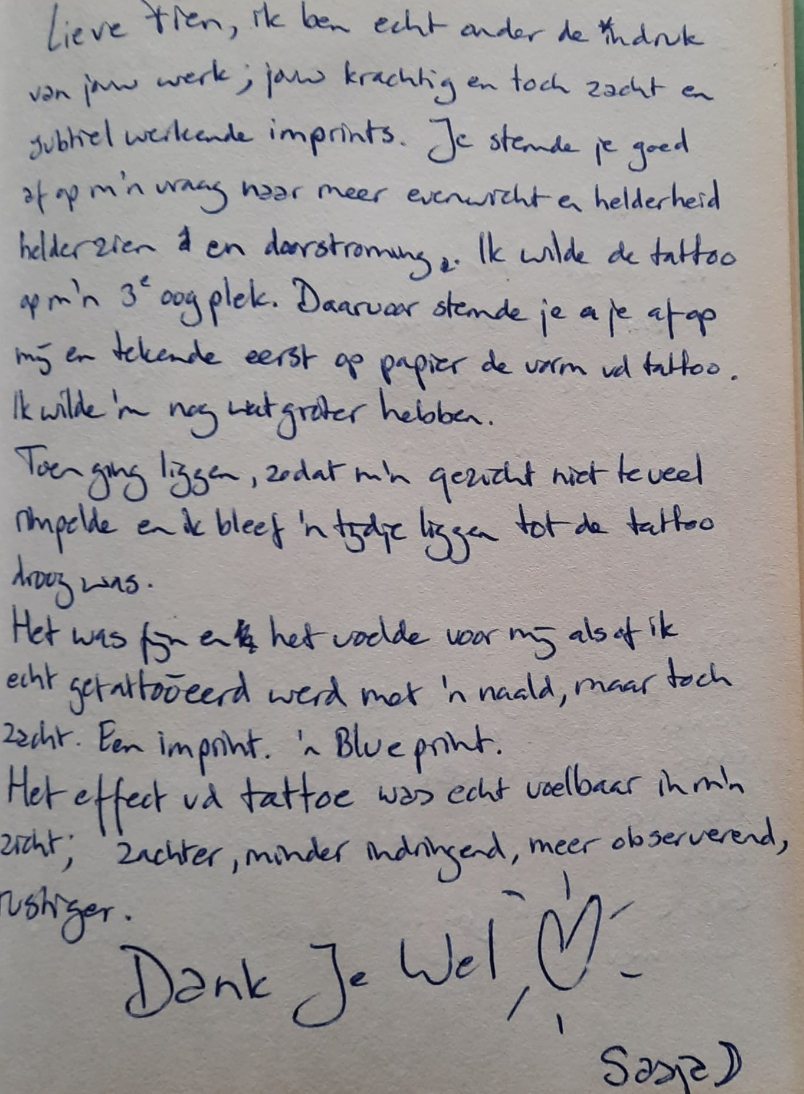 Lieve Tien, ik ben echt onder de indruk
van jouw werk; jouw krachtig en toch zacht en
subtiel werkende imprints. Je stemde je goed
af op m'n vraag naar meer evenwicht en helderheid
helderzien en doorstroming. Ik wilde de tattoo
op m'n 3e oog plek. Daarvoor stemde je je af op
mij en tekende eerst op papier de vorm vd tattoo.
Ik wilde 'm nog wat groter hebben.
Toen ging liggen, zodat m'n gezicht niet teveel
rimpelde en ik bleef 'n tijdje liggen tot de tattoo
droog was.
Het was fijn en het voelde voor mij alsof ik
echt getattoëerd werd met 'n naald, maar toch
zacht. Een imprint. 'n Blue print.
Het effect vd tattoe was echt voelbaar in m'n
zicht; zachter, minder indringend, meer observerend,
rustiger.
Dank Je Wel
Sasja